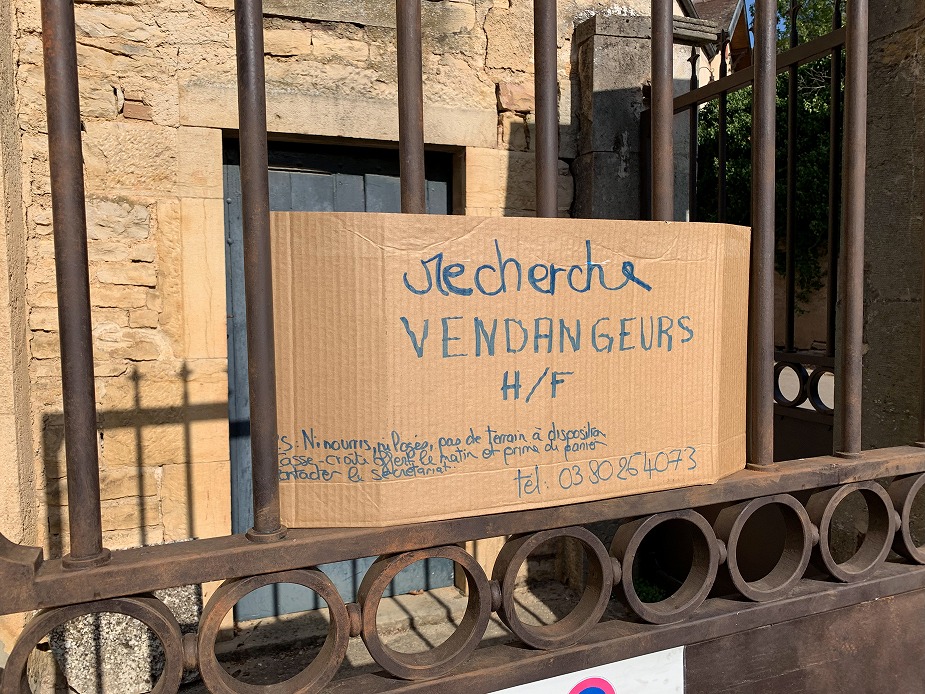 Recherche
VENDANGEURS
H/F
PS: Ni nourris, ni logés, pas de terrain à disposition
Casse-croûte offert le matin et prime du panier
contacter le secrétariat
tél: 03 80 26 40 73